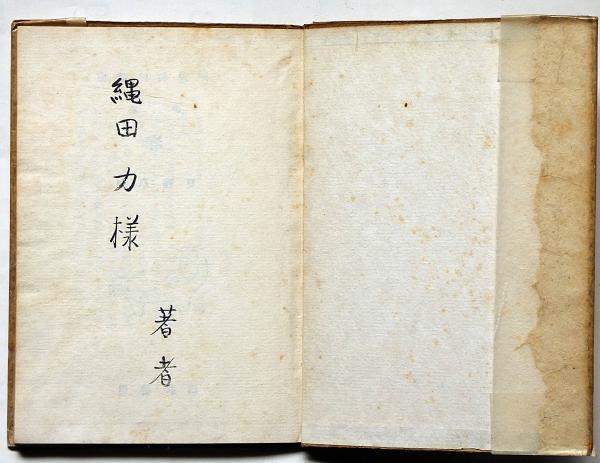 縄田力様
著者